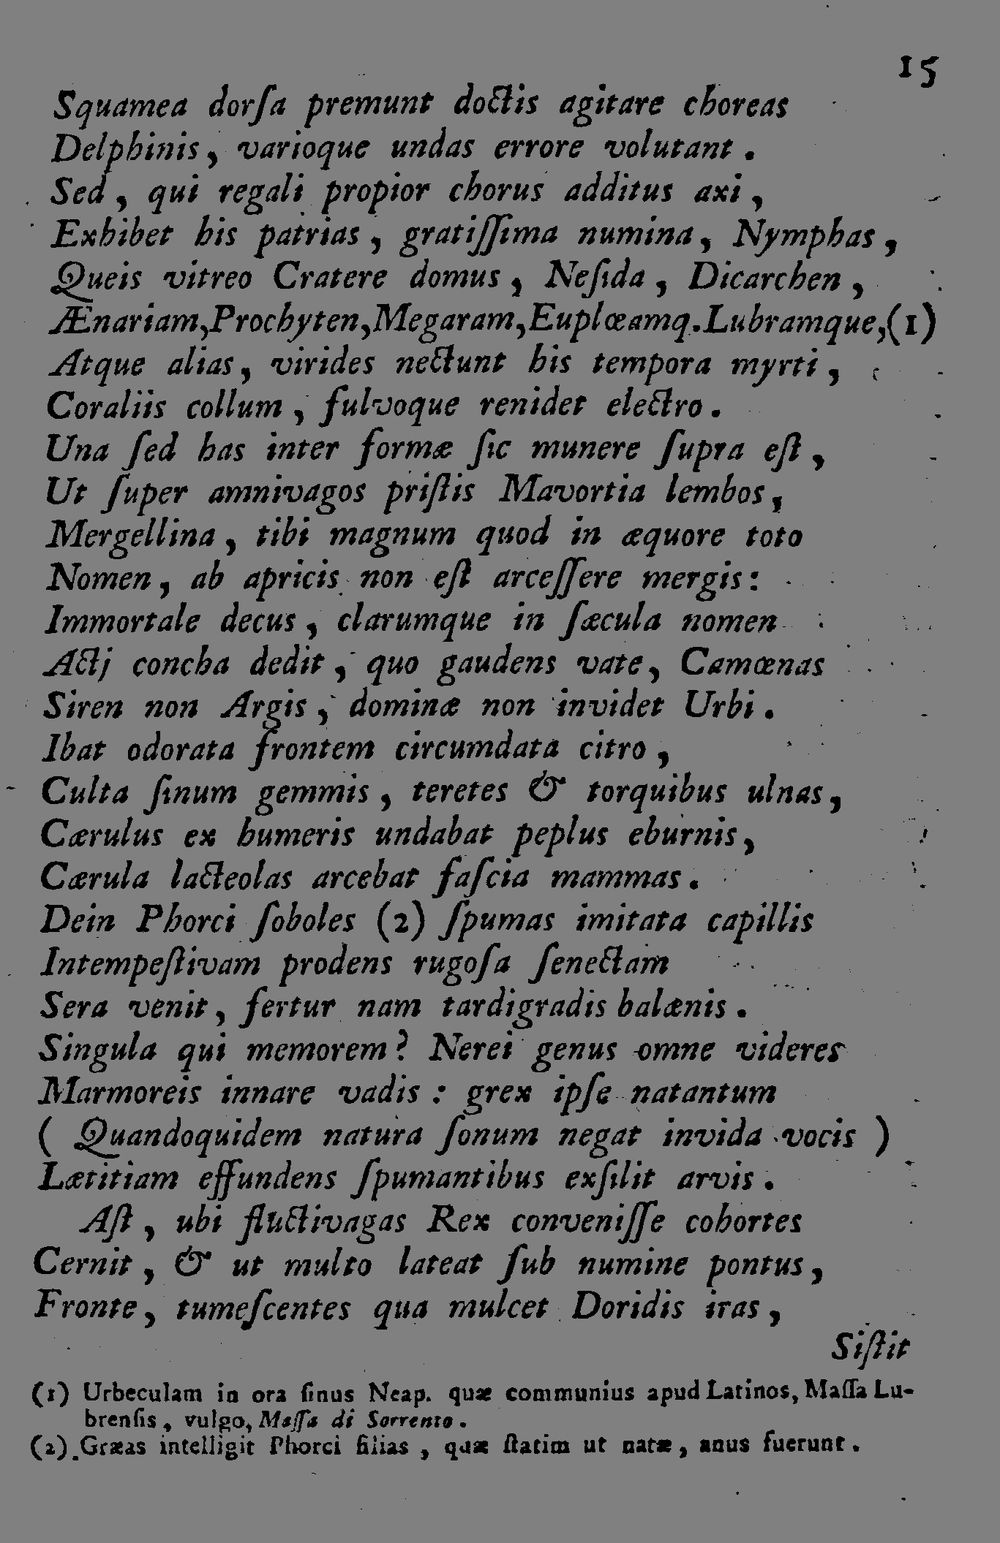 15
Squamea dorſa premunt doctis agitare choreas
Delphinis, varioque undas errore volutant.
Sed, qui regali propior chorus additus axi,
Exhibet his patrias, gratiſſima numina, Nymphas,
Queis vitreo Cratere domus, Neſida, Dicarchen,
Ænariam, Prochyten, Megaram, Euplœamq. Lubramque, (1)
Atque alias, virides nectunt his tempora myrti,
Coraliis collum, fulvoque renidet electro.
Una ſed has inter formæ ſic munere ſupra eſt,
Ut ſuper amnivagos priſtis Mavortia lembos,
Mergellina, tibi magnum quod in æquore toto
Nomen, ab apricis non eſt arceſſere mergis:
Immortale decus, clarumque in ſæcula nomen
Actj concha dedit, quo gaudens vate, Camœnas
Siren non Argis, dominæ non invidet Urbi.
Ibat odorata frontem circumdata citro,
Culta ſinum gemmis, teretes & torquibus ulnas,
Cærulus ex humeris undabat peplus eburnis,
Cærula lacteolas arcebat faſcia mammas.
Dein Phorci ſoboles (2) ſpumas imitata capillis
Intempeſtivam prodens rugoſa ſenectam
Sera venit, fertur nam tardigradis balænis.
Singula qui memorem? Nerei genus omne videres
Marmoreis innare vadis: grex ipſe natantum
( Quandoquidem natura ſonum negat invida vocis )
Lætitiam effundens ſpumantibus exſilit arvis.
Aſt, ubi fluctivagas Rex conveniſſe cohortes
Cernit, & ut multo lateat ſub numine pontus,
Fronte, tumeſcentes qua mulcet Doridis iras,
Siſtit
(1) Urbeculam in ora ſinus Neap. quæ communius apud Latinos, Maſſa Lu-
brenſis, vulgo, Maſſa di Sorrento.
(2) Græas intelligit Phorci filias, quæ ſtatim ut natæ, anus fuerunt.